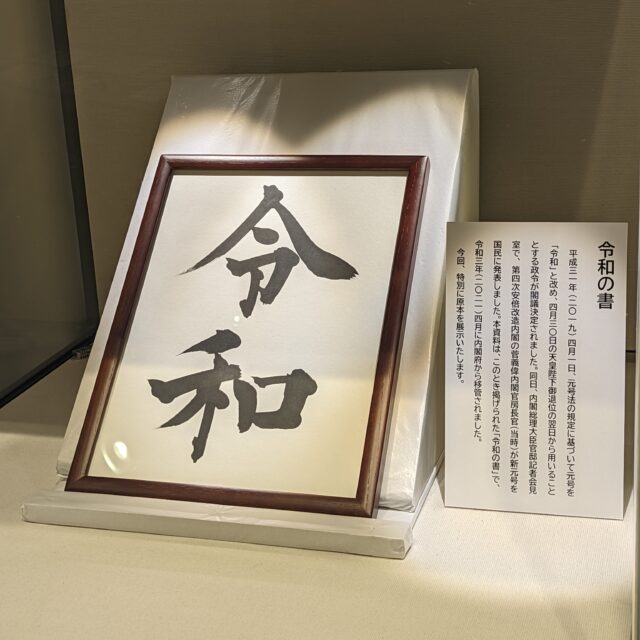 令和
令和の書
平成三一年(二〇一九)四月一日、元号法の規定に基づいて元号を
「令和」と改め、四月三〇日の天皇陛下御退位の翌日から用いること
とする政令が閣議決定されました。同日、内閣総理大臣官邸記者会見
室で、第四次安倍改造内閣の菅義偉内閣官房長官(当時)が新元号を
国民に発表しました。本資料は、このとき掲げられた「令和の書」で、
令和三年(二〇二一)四月に内閣府から移管されました。
今回、特別に原本を展示いたします。